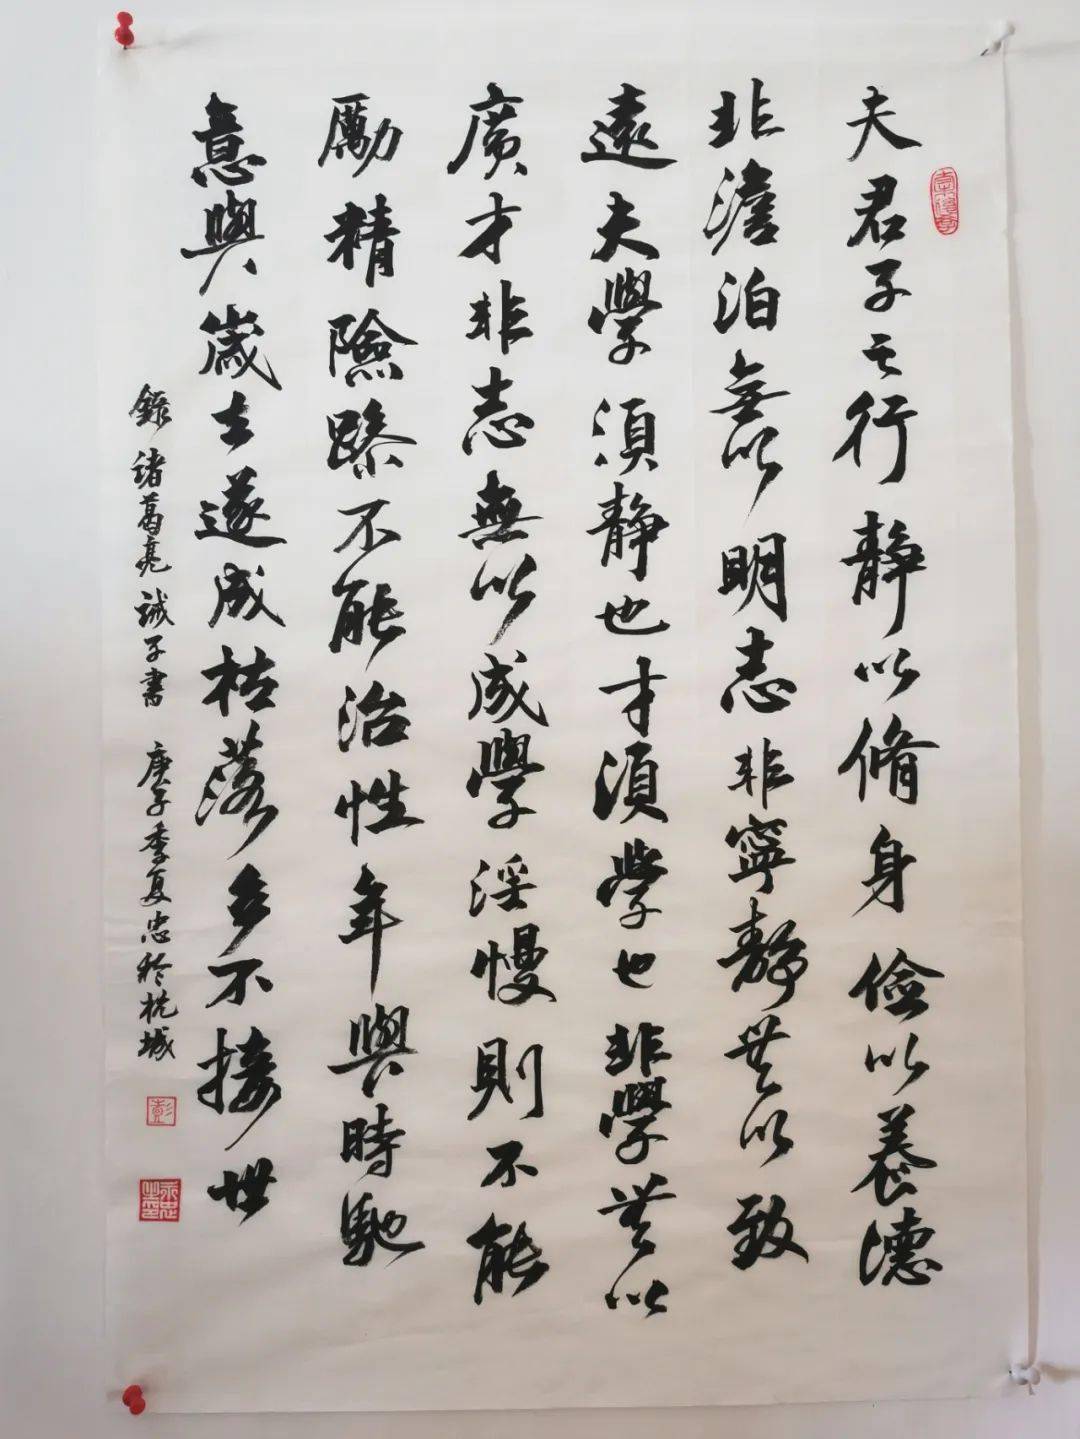 夫君子之行靜以脩身儉以養德
非澹泊無以明志非寧靜無以致
遠夫學須靜也才須學也非學無以
廣才非志無以成學淫慢則不能
勵精險躁不能治性年與時馳
意與歲去遂成枯落多不接世
錄諸葛亮誡子書 庚子季夏忠於杭城
彭